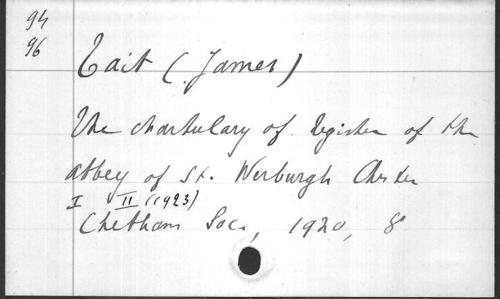 94
96
Tait (James)
The chartulary of register of the
abbey of St. Werburgh Chester
I II (1923)
Chetham Soc., 1920, 8